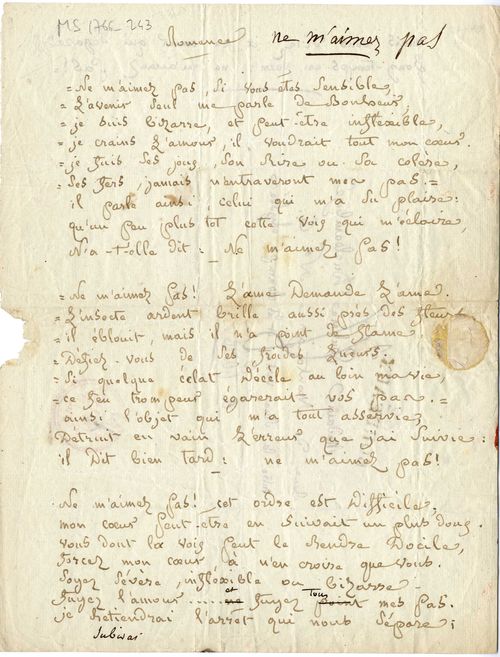 MS 1766-243
Romance ne m'aimez pas
= Ne m'aimez pas, Si vous êtes Sensible,
= L'avenir Seul me parle de Bonheur,
= je Suis bizarre, et peut-être infléxible,
= je crains L'amour, il voudrait tout mon cœur.
= je fuis Ses joug, Son Rire ou Sa colère,
= Ses fers, jamais n'entraveront mes pas. =
il parle ainsi, celui qui m'a Su plaire:
qu'un peu plus tôt cette voix qui m'éclaire,
N'a-t-elle dit: Ne m'aimez pas!
= Ne m'aimez pas! L'ame Demande L'ame.
= L'insecte ardent brille aussi près des fleurs
= il éblouit, mais il n'a point de flame
= Défiez-vous de Ses froides Lueurs.
= Si quelque éclat Décèle au loin ma vie,
= ce feu trompeur égarerait vos pas. =
ainsi l'objet qui m'a tout asservie,
Détruit en vain L'erreur que j'ai Suivie:
il Dit bien tard: ne m'aimez pas!
Ne m'aimez pas! cet ordre est Difficile,
mon cœur peut-être en Suivait un plus doux.
vous dont la voix peut le Rendre Docile,
forcez mon cœur à n'en croire que vous.
Soyez Sévère, infléxible ou bizarre
et Tous
fuyez l'amour ...... ne fuyez point mes pas.
je Retiendrai l'arrêt qui nous Sépare;
Subirai